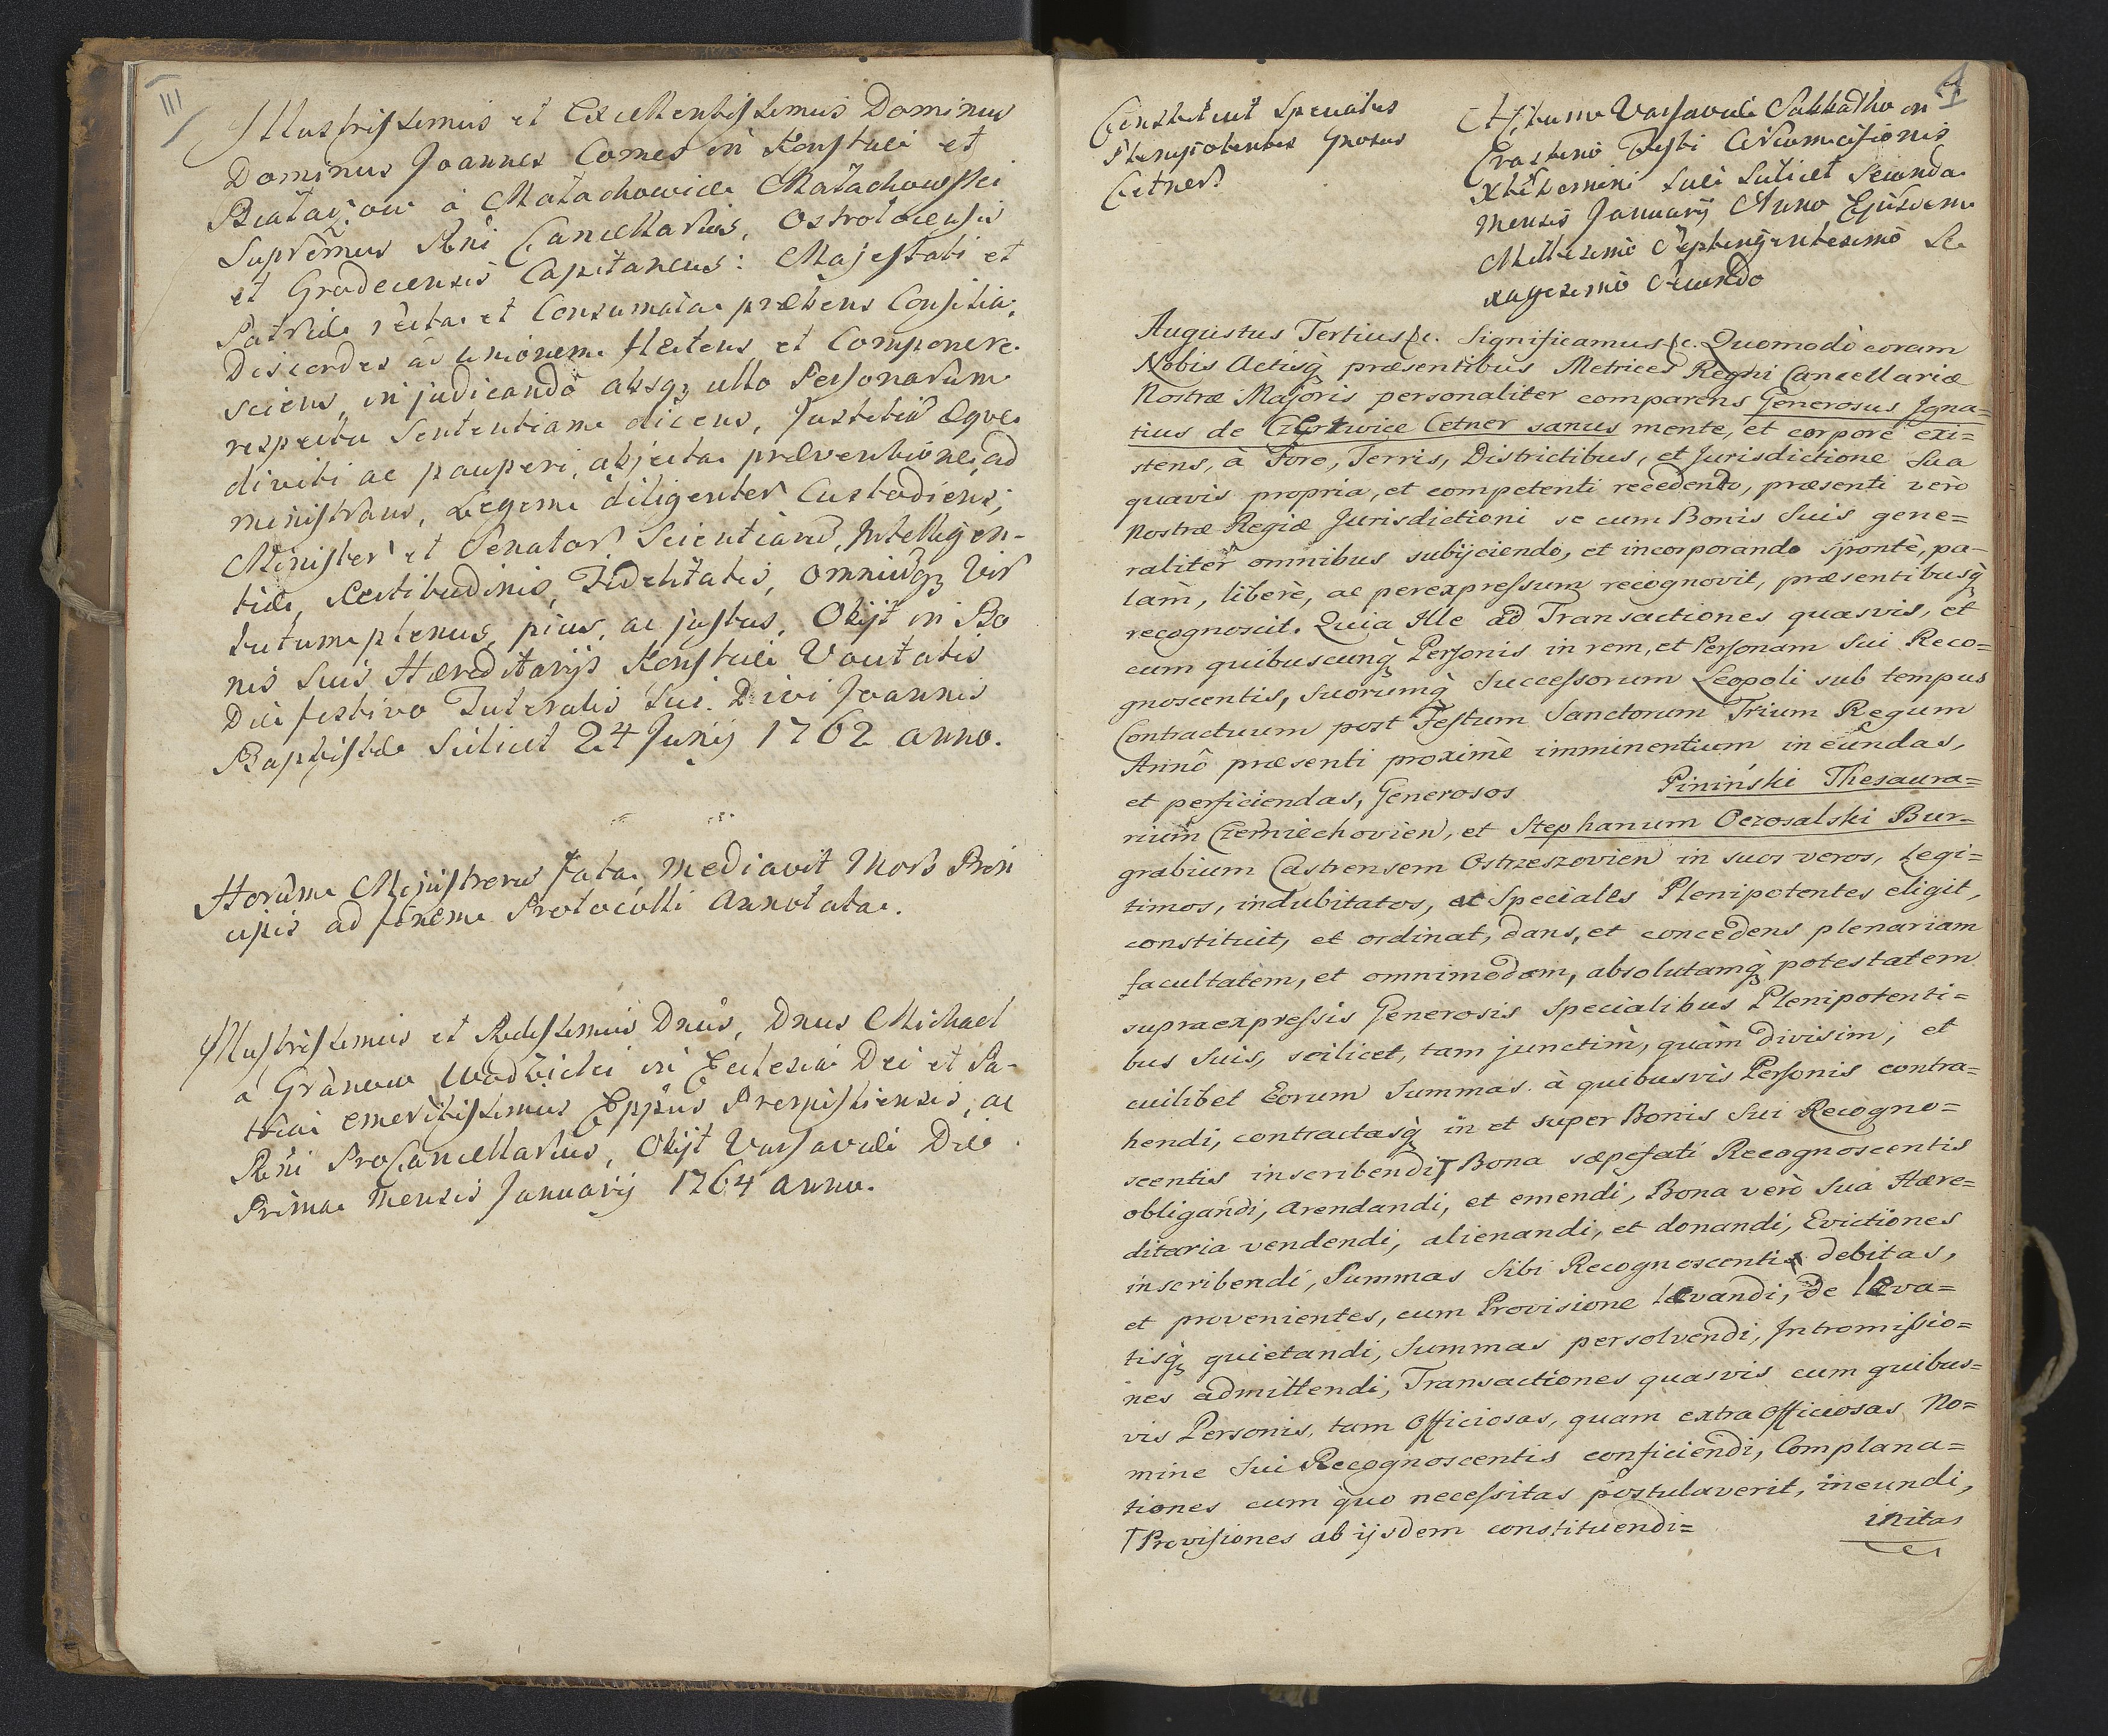 III
Illustrissimus et Excellentissimus Dominus
Dominus Joannes Comes in Konskie et
Białaczow a Małachowice Małachowski
Supremus Rñi Cancellarius, Ostrołecensis
et Grodecensis Capitaneus: Majestati et
Patriæ recta et Consumata præbens Consilia,
Discordes ad unionem flectens et Componere
sciens, in judicando absq₃ ullo Personarum
respectu Sententiam dicens, Justitiam æque
diviti ac pauperi, abjecta præventione, ad
ministrans, Legem diligenter Custodiens,
Minister et Senator Scientiarũ, Intelligen-
tiæ, Rectitudinis, Fidelitatis, omniũq₃ Vir
tutum plenus, pius, ac justus, Obijt in Bo
nis Suis Hæreditarijs Konskie Vocitatis
Die festivo Tutelaris Sui Divi Joannis
Baptistæ Scilicet 24 Junij 1762 anno.
Horum Ministrorũ fata mediavit Mors Prin
cipis ad finem Protocolli annotata.
Illustrissimus et Rndissimus Dnus, Dnus Michael
a Granow Wodzicki in Ecclesia Dei et Pa-
tria emeritissimus Eppus Premisliensis, ac
Rñi ProCancellarius, Obijt Varsaviæ Die
Prima Mensis Januarij 1764 anno.
1
Constituit Speciales
Plenipotentes Gnosus
Cetner
Actum Varsaviæ Sabbatho in
Crastino Festi Circumcisionis
Xti Domini Suæ Scilicet Secunda
mensis Januarij Anno Ejusdem
Millesimo Septingentesimo Se
xagesimo Secundo
Augustus Tertius &c. Significamus &c. Quomodo coram
Nobis Actisq₃ præsentibus Metrices Regni Cancellariæ
Nostræ Majoris personaliter comparens Generosus Igna=
tius de Czertwice Cetner sanus mente, et corpore exi=
stens, à Foro, Terris, Districtibus, et Jurisdictione Sua
quavis propria, et competenti recedendo, præsenti verò
Nostræ Regiæ Jurisdictioni se cum Bonis Suis gene=
raliter omnibus subijciendo, et incorporando spontè, pa-
làm, liberè, ac per expressum recognovit, præsentibusq₃
recognoscit. Quia Ille ad Transactiones quasvis, et
cum quibuscunq₃ Personis in rem, et Personam Sui Reco=
gnoscentis, Suorumq₃ Successorum Leopoli sub tempus
Contractuum post Festum Sanctorum Trium Regum
Annô præsenti proximè imminentium ineundas,
et perficiendas, Generosos Pininski Thesaura=
rium Czerniechovien, et Stephanum Oczosalski Bur=
grabium Castrensem Ostrzeszovien in suos veros, Legi=
timos, indubitatos, et Speciales Plenipotentes eligit,
constituit, et ordinat, dans, et concedens plenariam
facultatem, et omnimodam, absolutamq₃ potestatem
supraexpressis Generosis Specialibus Plenipotenti=
bus Suis, scilicet, tam junctim, quàm divisim, et
cuilibet Eorum Summas à quibusvis Personis contra=
hendi, contractasq₃ in et super Bonis Sui Recogno=
scentis inscribendi, ꞱBona sæpefati Recognoscentis
obligandi, arendandi, et emendi, Bona verò Sua Hære=
ditaria vendendi, alienandi, et donandi, Evictiones
inscribendi, Summas Sibi Recognoscenti debitas,
et provenientes, cum Provisione levandi, de leva=
tisq₃ quietandi, Summas persolvendi, Intromissio=
nes admittendi, Transactiones quasvis cum quibus=
vis Personis, tam Officiosas, quam extra Officiosas No=
mine Sui Recognoscentis conficiendi, Complana=
tiones cum quo necessitas postulaverit, ineundi,
ꞱProvisiones ab ijsdem constituendi= initas